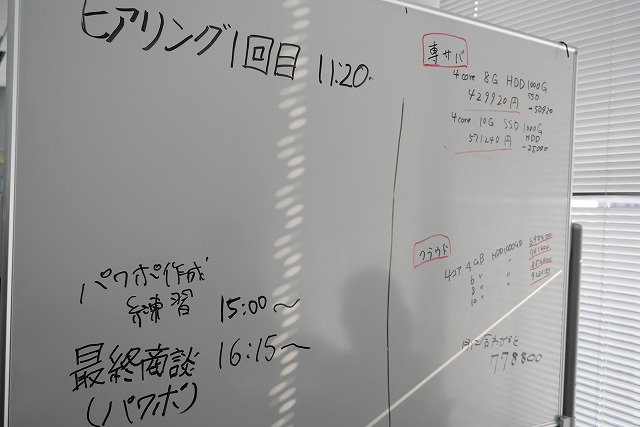 ヒアリング1回目 11:20~
パワポ作成
練習 15:00~
最終商談 16:15~
(パワポ)
専サバ
4core 8G HDD1000G
429920円 SSD
4core 10G SSD 1000G
571240円 HDD
クラウド
4コア 4GB HDD1000GB
6 〃 〃
8 〃 〃
10 〃 〃
778800